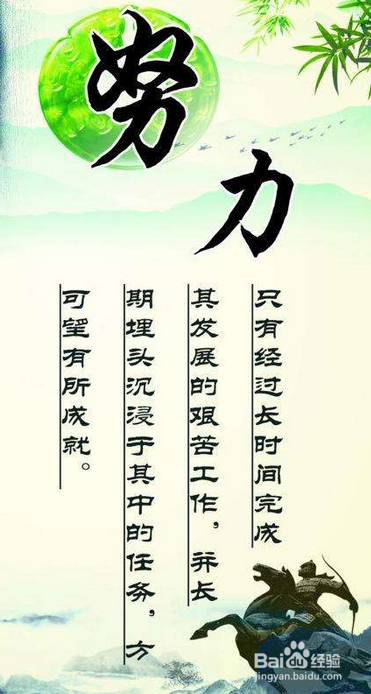 努力
只有经过长时间完成
其发展的艰苦工作，并长
期埋头沉浸于其中的任务，方
可望有所成就。
Baidu经验
jingyan.baidu.com